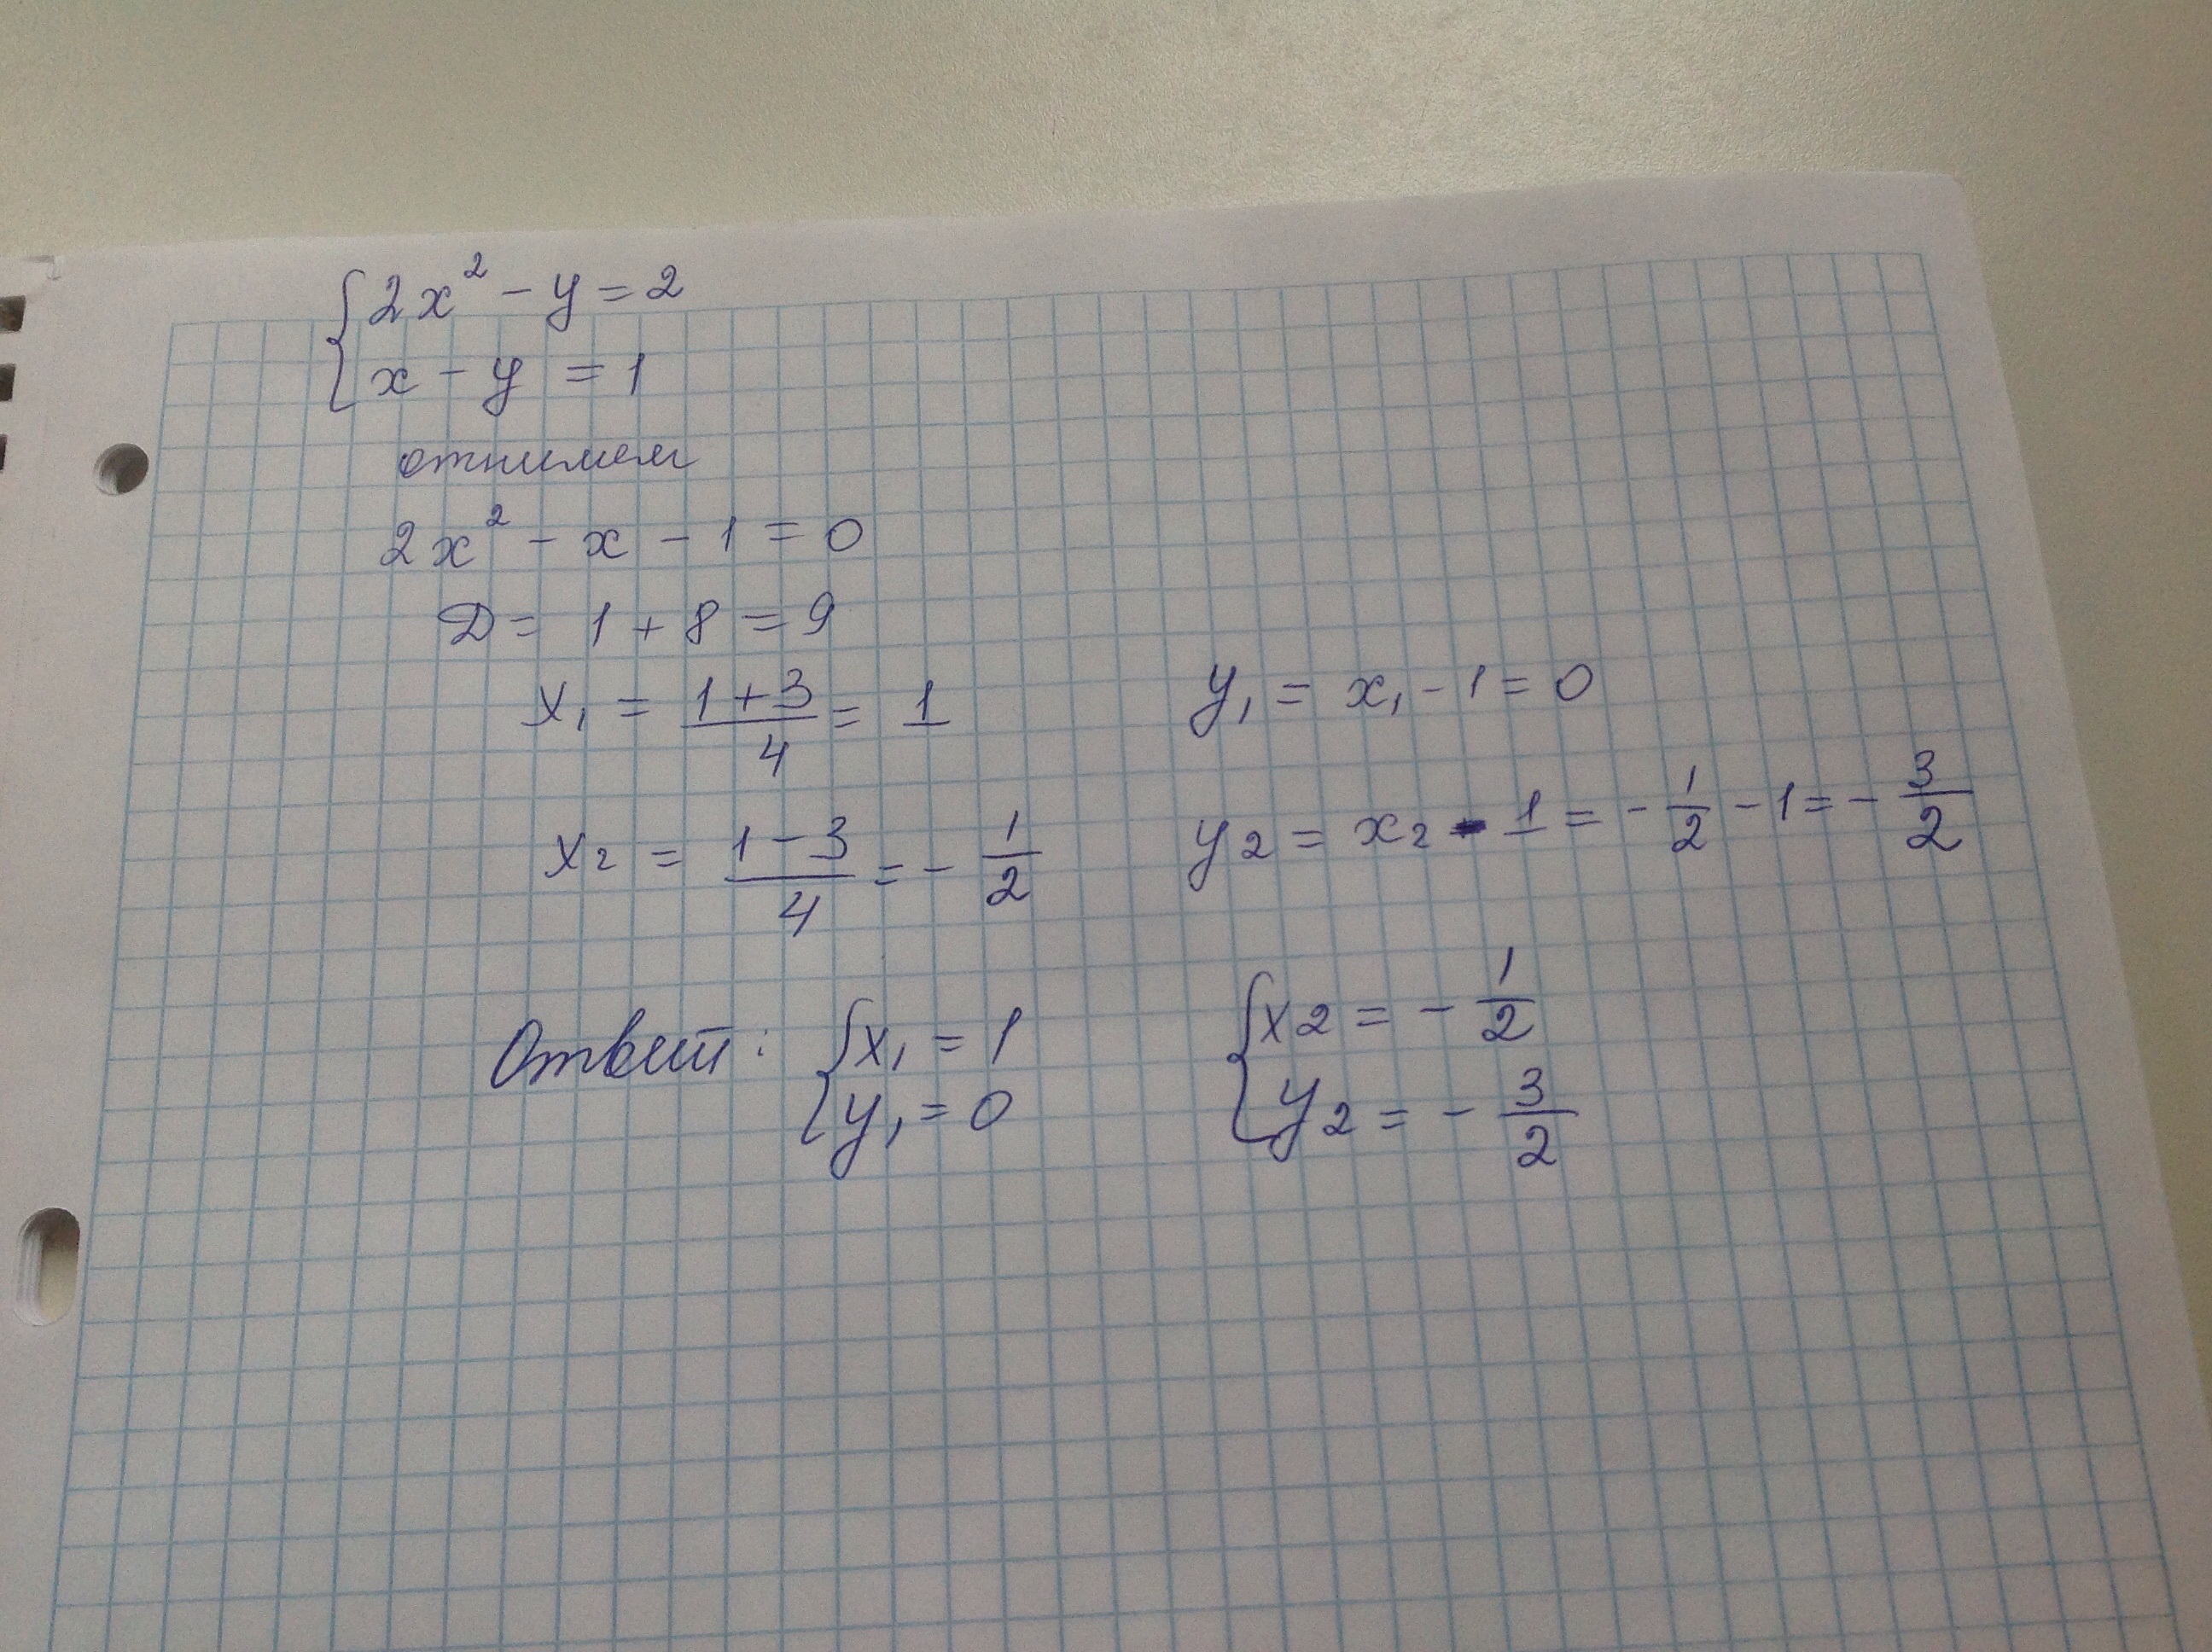 { 2x² - y = 2
x - y = 1
отнимем
2x² - x - 1 = 0
D = 1 + 8 = 9
x₁ = (1+3)/4 = 1
y₁ = x₁ - 1 = 0
x₂ = (1-3)/4 = -1/2
y₂ = x₂ - 1 = -1/2 - 1 = -3/2
Ответ: { x₁ = 1
y₁ = 0
{ x₂ = -1/2
y₂ = -3/2